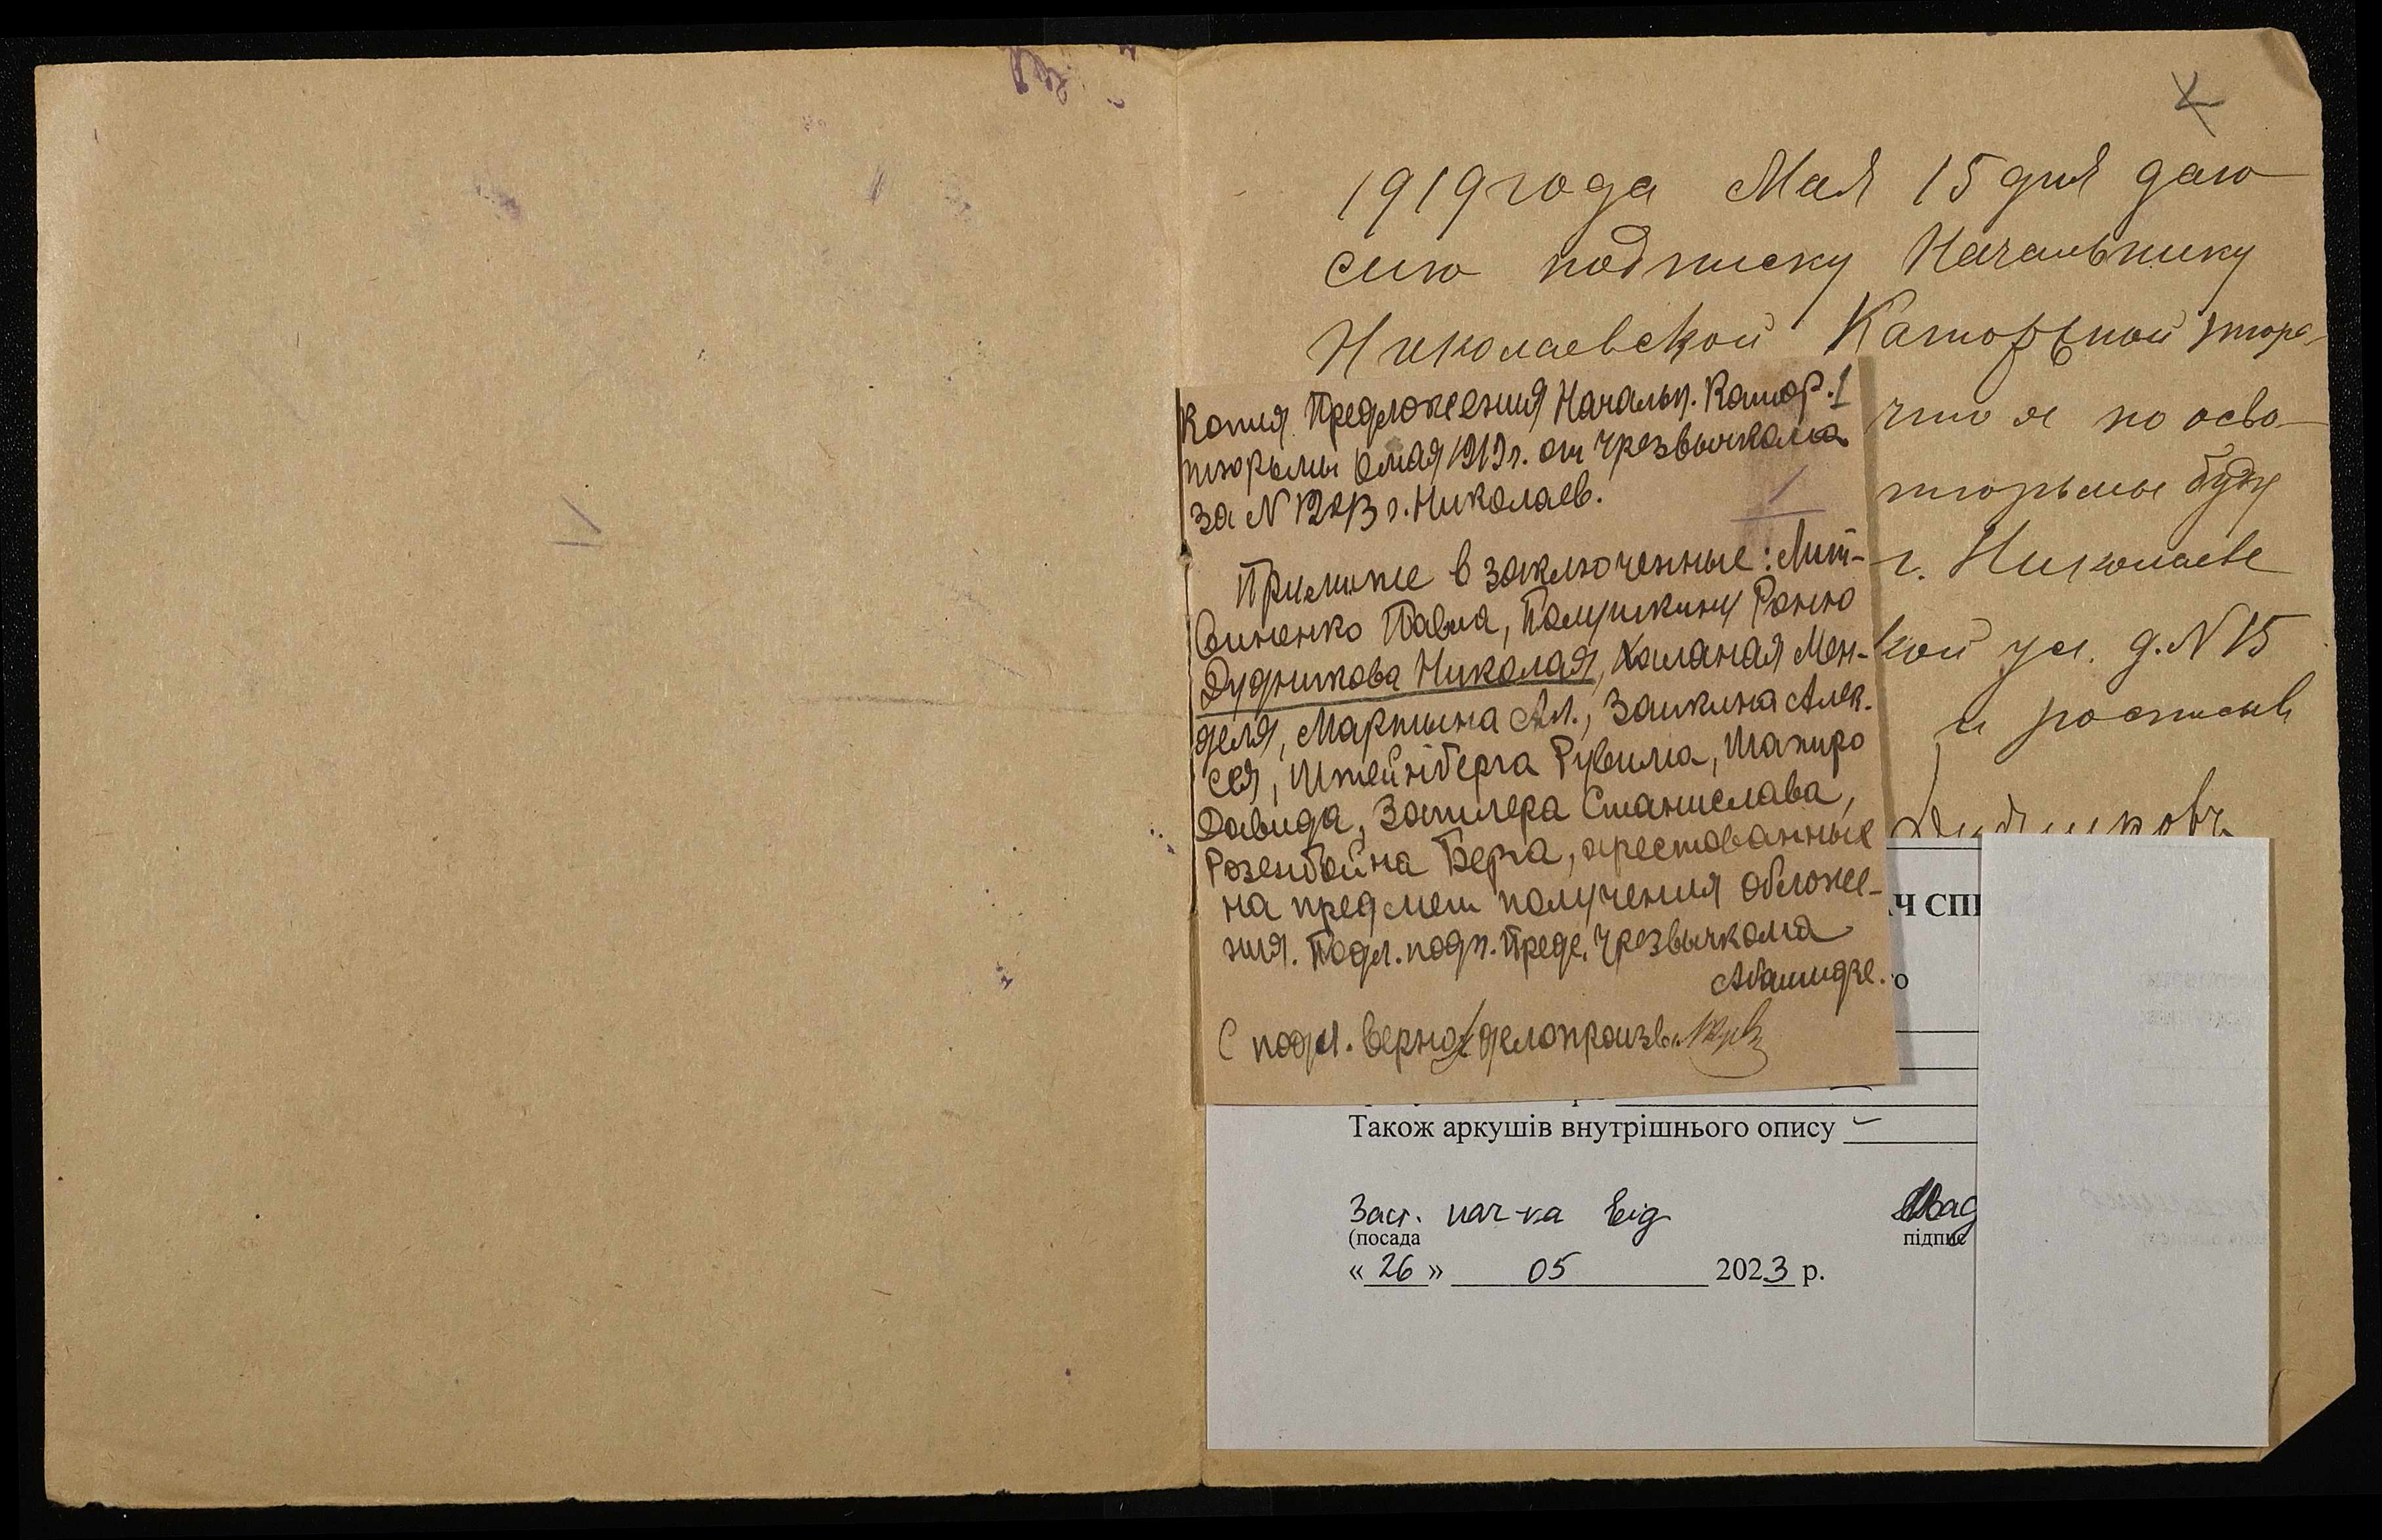 1919 года Мая 15 дня даю
сию подписку Начальнику
Николаевской Каторжной тюрь-
что я по осво-
тюрьмы буду
г. Николаеве
кой ул. д. N 15
и росписыв
Дудниковъ
Копия Предложения Начальн. Катор. 1
тюрьмы мая 1919 г. от Чрезвычкома
за N г. Николаев.
Примите в заключенные: Лит-
виненко Павла, Полушкину Раню
Дудникова Николая, Каланая Мен-
деля, Мартына Ал., Заикина Алек-
сея, Штейнберга Рувима, Шапиро
Давида, Станислава,
Розенбойна Берга, арестованные
на предмет получения обложе-
ния. Подл. подп. Пред. Чрезвычкома
Абашидзе.
С подл. верно: делопроизв.
Ч СПІ
о
Також аркушів внутрішнього опису
Заст. нач-ка від
(посада
підпис
« 26 » 05 2023 р.